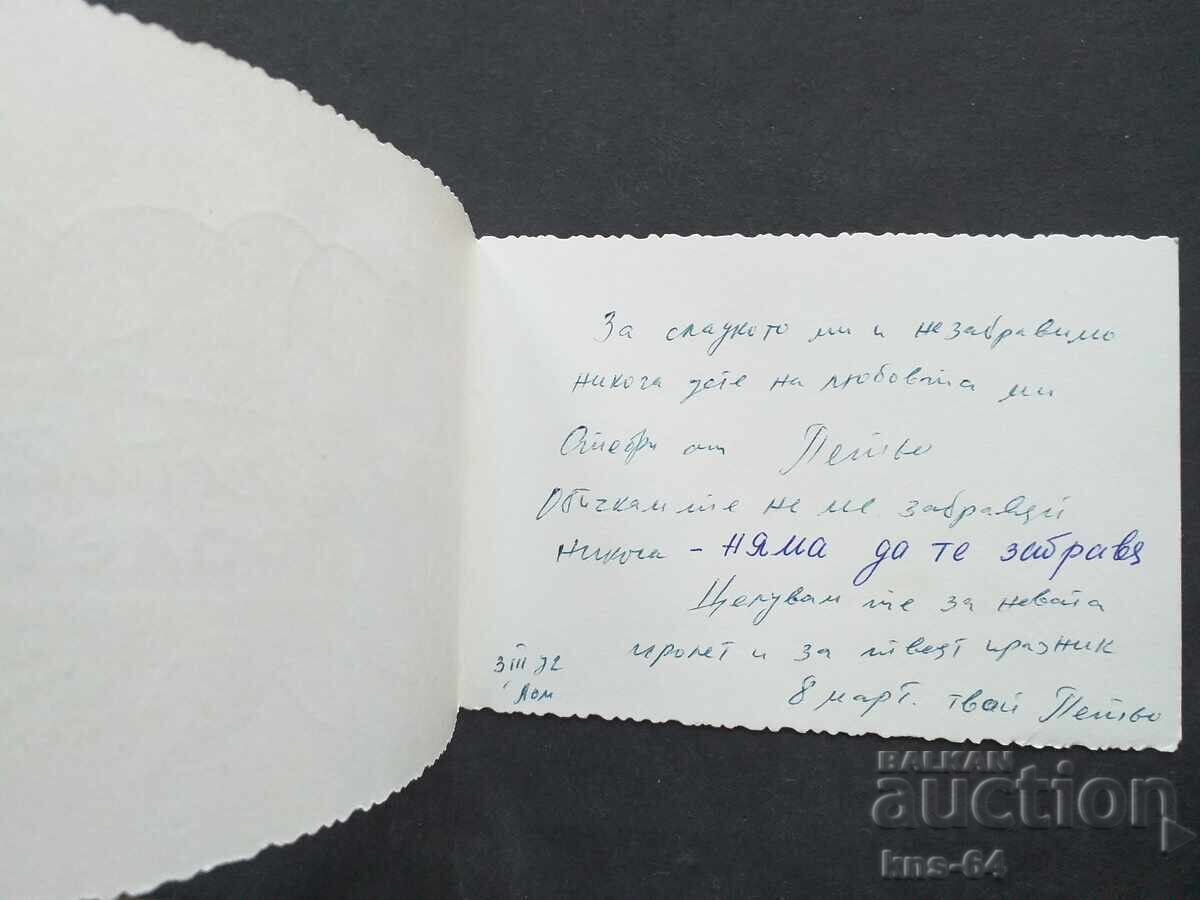 За сладкото ми и незабравимо
никога дете на любовта ми
от Петьо
Обичкам те не ме забравяй
никога - няма да те забравя
Целувам те за новата
пролет и за твоят празник
8 март. твой Петьо
3 III 72
Лом
BALKAN
auction
kns-64